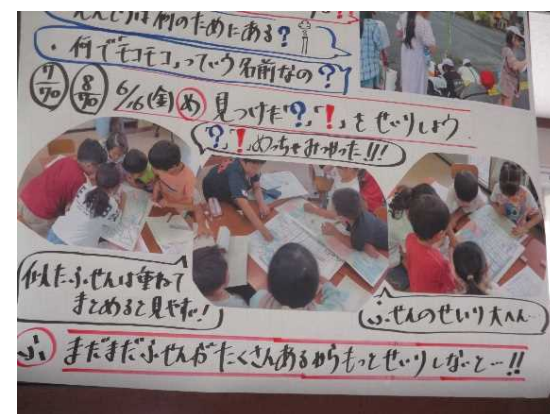 えんとつは何のためにある?
・何で「モコモコ」っていう名前なの?
7/70 8/70 6/6(金) め 見つけた「?」「!」をせいりしよう
「?」「!」めっちゃみつかった!!!
似たふせんは重ねて
まとめると見やすい!
ふせんのせいり大へん…
ふ まだまだふせんがたくさんあるからもっとせいりしないと…!!